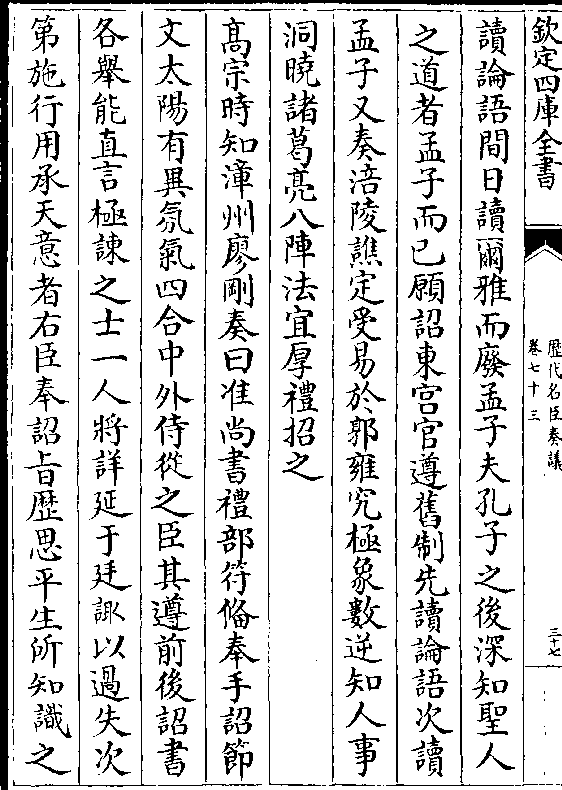 欽定四庫全書
歷代名臣奏議
卷七十三
三十七
讀論語間日讀爾雅而廢孟子夫孔子之後深知聖人
之道者孟子而已願詔東宫官遵舊制先讀論語次讀
孟子又奏涪陵譙定受易於郭雍究極象數逆知人事
洞曉諸葛亮八陣法宜厚禮招之
髙宗時知漳州廖剛奏曰准尚書禮部符俻奉手詔節
文太陽有異氛氣四合中外侍從之臣其遵前後詔書
各舉能直言極諫之士一人將詳延于廷諏以過失次
第施行用承天意者右臣奉詔㫖歴思平生所知識之